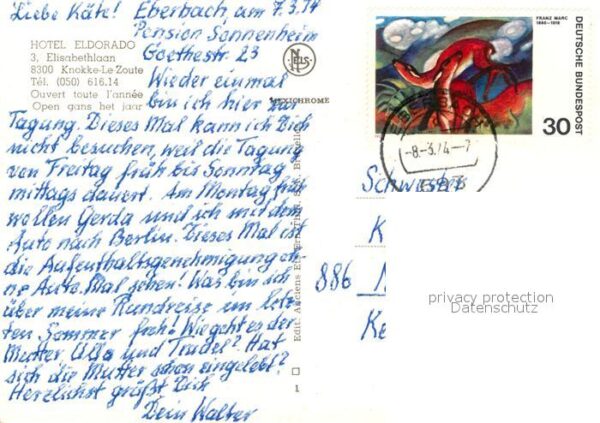 Liebe Käte! Eberbach, am 7.3.74
Pension Sonnenheim
Goethestr. 23
HOTEL ELDORADO
3, Elisabethlaan
8300 Knokke-Le Zoute
Tél. (050) 616.14
Ouvert toute l'année
Open gans het jaar
NELS
MEXICHROME
Wieder einmal
bin ich hier zur
Tagung. Dieses Mal kann ich Dich
nicht besuchen, weil die Tagung
von Freitag früh bis Sonntag
mittags dauert. Am Montag früh
wollen Gerda und ich mit dem
Auto nach Berlin. Dieses Mal ist
die Aufenthaltsgenehmigung oh
ne Auto. Mal sehen! Was bin ich
über meine Rundreise im letz-
ten Sommer froh! Wie geht es der
Mutter, Ulla und Trudel? Hat
sich die Mutter schon eingelebt?
Herzlichst grüßt Dich
Dein Walter
Edit.
1
FRANZ MARC
1880-1916
DEUTSCHE BUNDESPOST
30
-8.-3.74-7
Schwester
K
886 N
Ke
privacy protection
Datenschutz